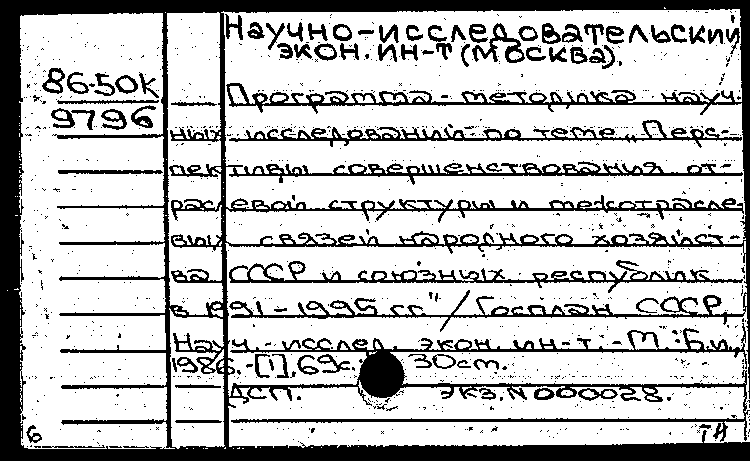 Научно-исследовательский
экон. ин-т (Москва).
86-50к
9796
Программа-методика науч-
ных исследований по теме „Перс-
пективы совершенствования от-
раслевой структуры и межотрасле-
вых связей народного хозяйст-
ва СССР и союзных республик
в 1991-1995 гг" / Госплан СССР,
Науч.-исслед. экон. ин-т.-М.:Б.и.,
1986.-[1], 69с.; 30см.
ДСП. Экз.N 000028.
6
ТН